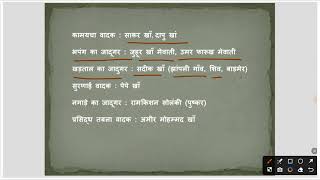 कामयचा वादक : साकर खाँ,दापु खां
भपंग का जादूगर : जुहूर खाँ मेवाती, उमर फारुख मेवाती
खड़ताल का जादूगर : सदीक खाँ (झांपली गाँव, शिव, बाड़मेर)
सुरणाई वादक : पेपे खाँ
नगाड़े का जादूगर : रामकिशन सोलंकी (पुष्कर)
प्रसिद्ध तबला वादक : अमीर मोहम्मद खाँ